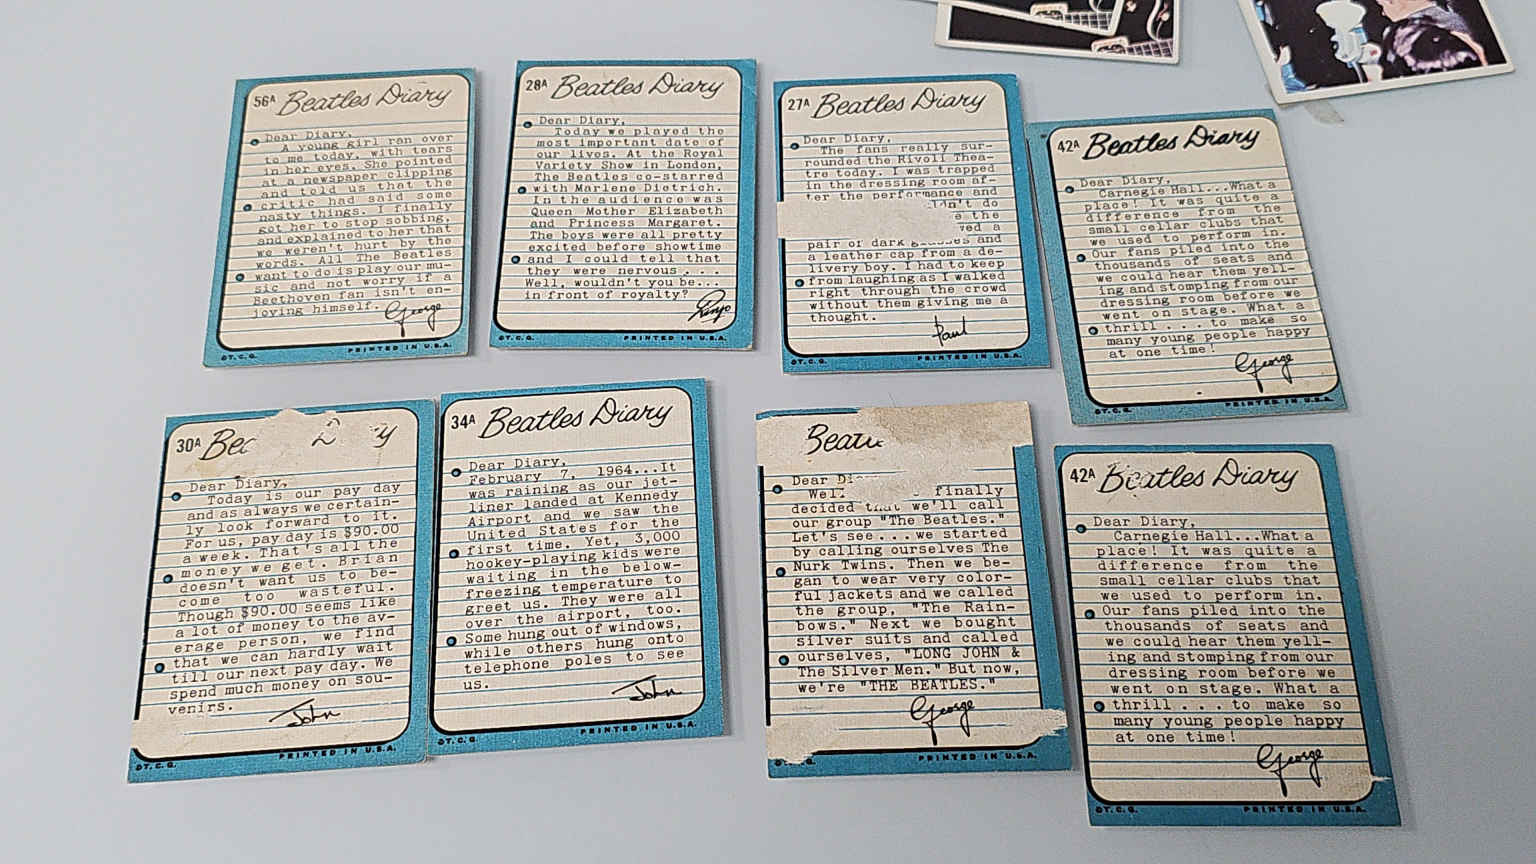 56A Beatles Diary
Dear Diary,
A young girl ran over
to me today, with tears
in her eyes. She pointed
at a newspaper clipping
and told us that the
critic had said some
nasty things. I finally
got her to stop sobbing,
and explained to her that
we weren't hurt by the
words. All The Beatles
want to do is play our mu-
sic and not worry if a
Beethoven fan isn't en-
joying himself.
George
©T.C.G. PRINTED IN U.S.A.
28A Beatles Diary
Dear Diary,
Today we played the
most important date of
our lives. At the Royal
Variety Show in London,
The Beatles co-starred
with Marlene Dietrich.
In the audience was
Queen Mother Elizabeth
and Princess Margaret.
The boys were all pretty
excited before showtime
and I could tell that
they were nervous . . .
Well, wouldn't you be...
in front of royalty?
Ringo
©T.C.G. PRINTED IN U.S.A.
27A Beatles Diary
Dear Diary,
The fans really sur-
rounded the Rivoli Thea-
tre today. I was trapped
in the dressing room af-
ter the performance and
dn't do
the
ved a
pair of dark glasses and
a leather cap from a de-
livery boy. I had to keep
from laughing as I walked
right through the crowd
without them giving me a
thought.
Paul
©T.C.G. PRINTED IN U.S.A.
42A Beatles Diary
Dear Diary,
Carnegie Hall...What a
place! It was quite a
difference from the
small cellar clubs that
we used to perform in.
Our fans piled into the
thousands of seats and
we could hear them yell-
ing and stomping from our
dressing room before we
went on stage. What a
thrill . . . to make so
many young people happy
at one time!
George
©T.C.G. PRINTED IN U.S.A.
30A Bea D ry
Dear Diary,
Today is our pay day
and as always we certain-
ly look forward to it.
For us, pay day is $90.00
a week. That's all the
money we get. Brian
doesn't want us to be-
come too wasteful.
Though $90.00 seems like
a lot of money to the av-
erage person, we find
that we can hardly wait
till our next pay day. We
spend much money on sou-
venirs.
John
©T.C.G. PRINTED IN U.S.A.
34A Beatles Diary
Dear Diary,
February 7, 1964...It
was raining as our jet-
liner landed at Kennedy
Airport and we saw the
United States for the
first time. Yet, 3,000
hookey-playing kids were
waiting in the below-
freezing temperature to
greet us. They were all
over the airport, too.
Some hung out of windows,
while others hung onto
telephone poles to see
us.
John
©T.C.G. PRINTED IN U.S.A.
Beatl
Dear Di
Well finally
decided that we'll call
our group "The Beatles."
Let's see...we started
by calling ourselves The
Nurk Twins. Then we be-
gan to wear very color-
ful jackets and we called
the group, "The Rain-
bows." Next we bought
silver suits and called
ourselves, "LONG JOHN &
The Silver Men." But now,
we're "THE BEATLES."
George
G. PRINTED IN U.S.A.
42A Beatles Diary
Dear Diary,
Carnegie Hall...What a
place! It was quite a
difference from the
small cellar clubs that
we used to perform in.
Our fans piled into the
thousands of seats and
we could hear them yell-
ing and stomping from our
dressing room before we
went on stage. What a
thrill . . . to make so
many young people happy
at one time!
George
©T.C.G. PRINTED IN U.S.A.